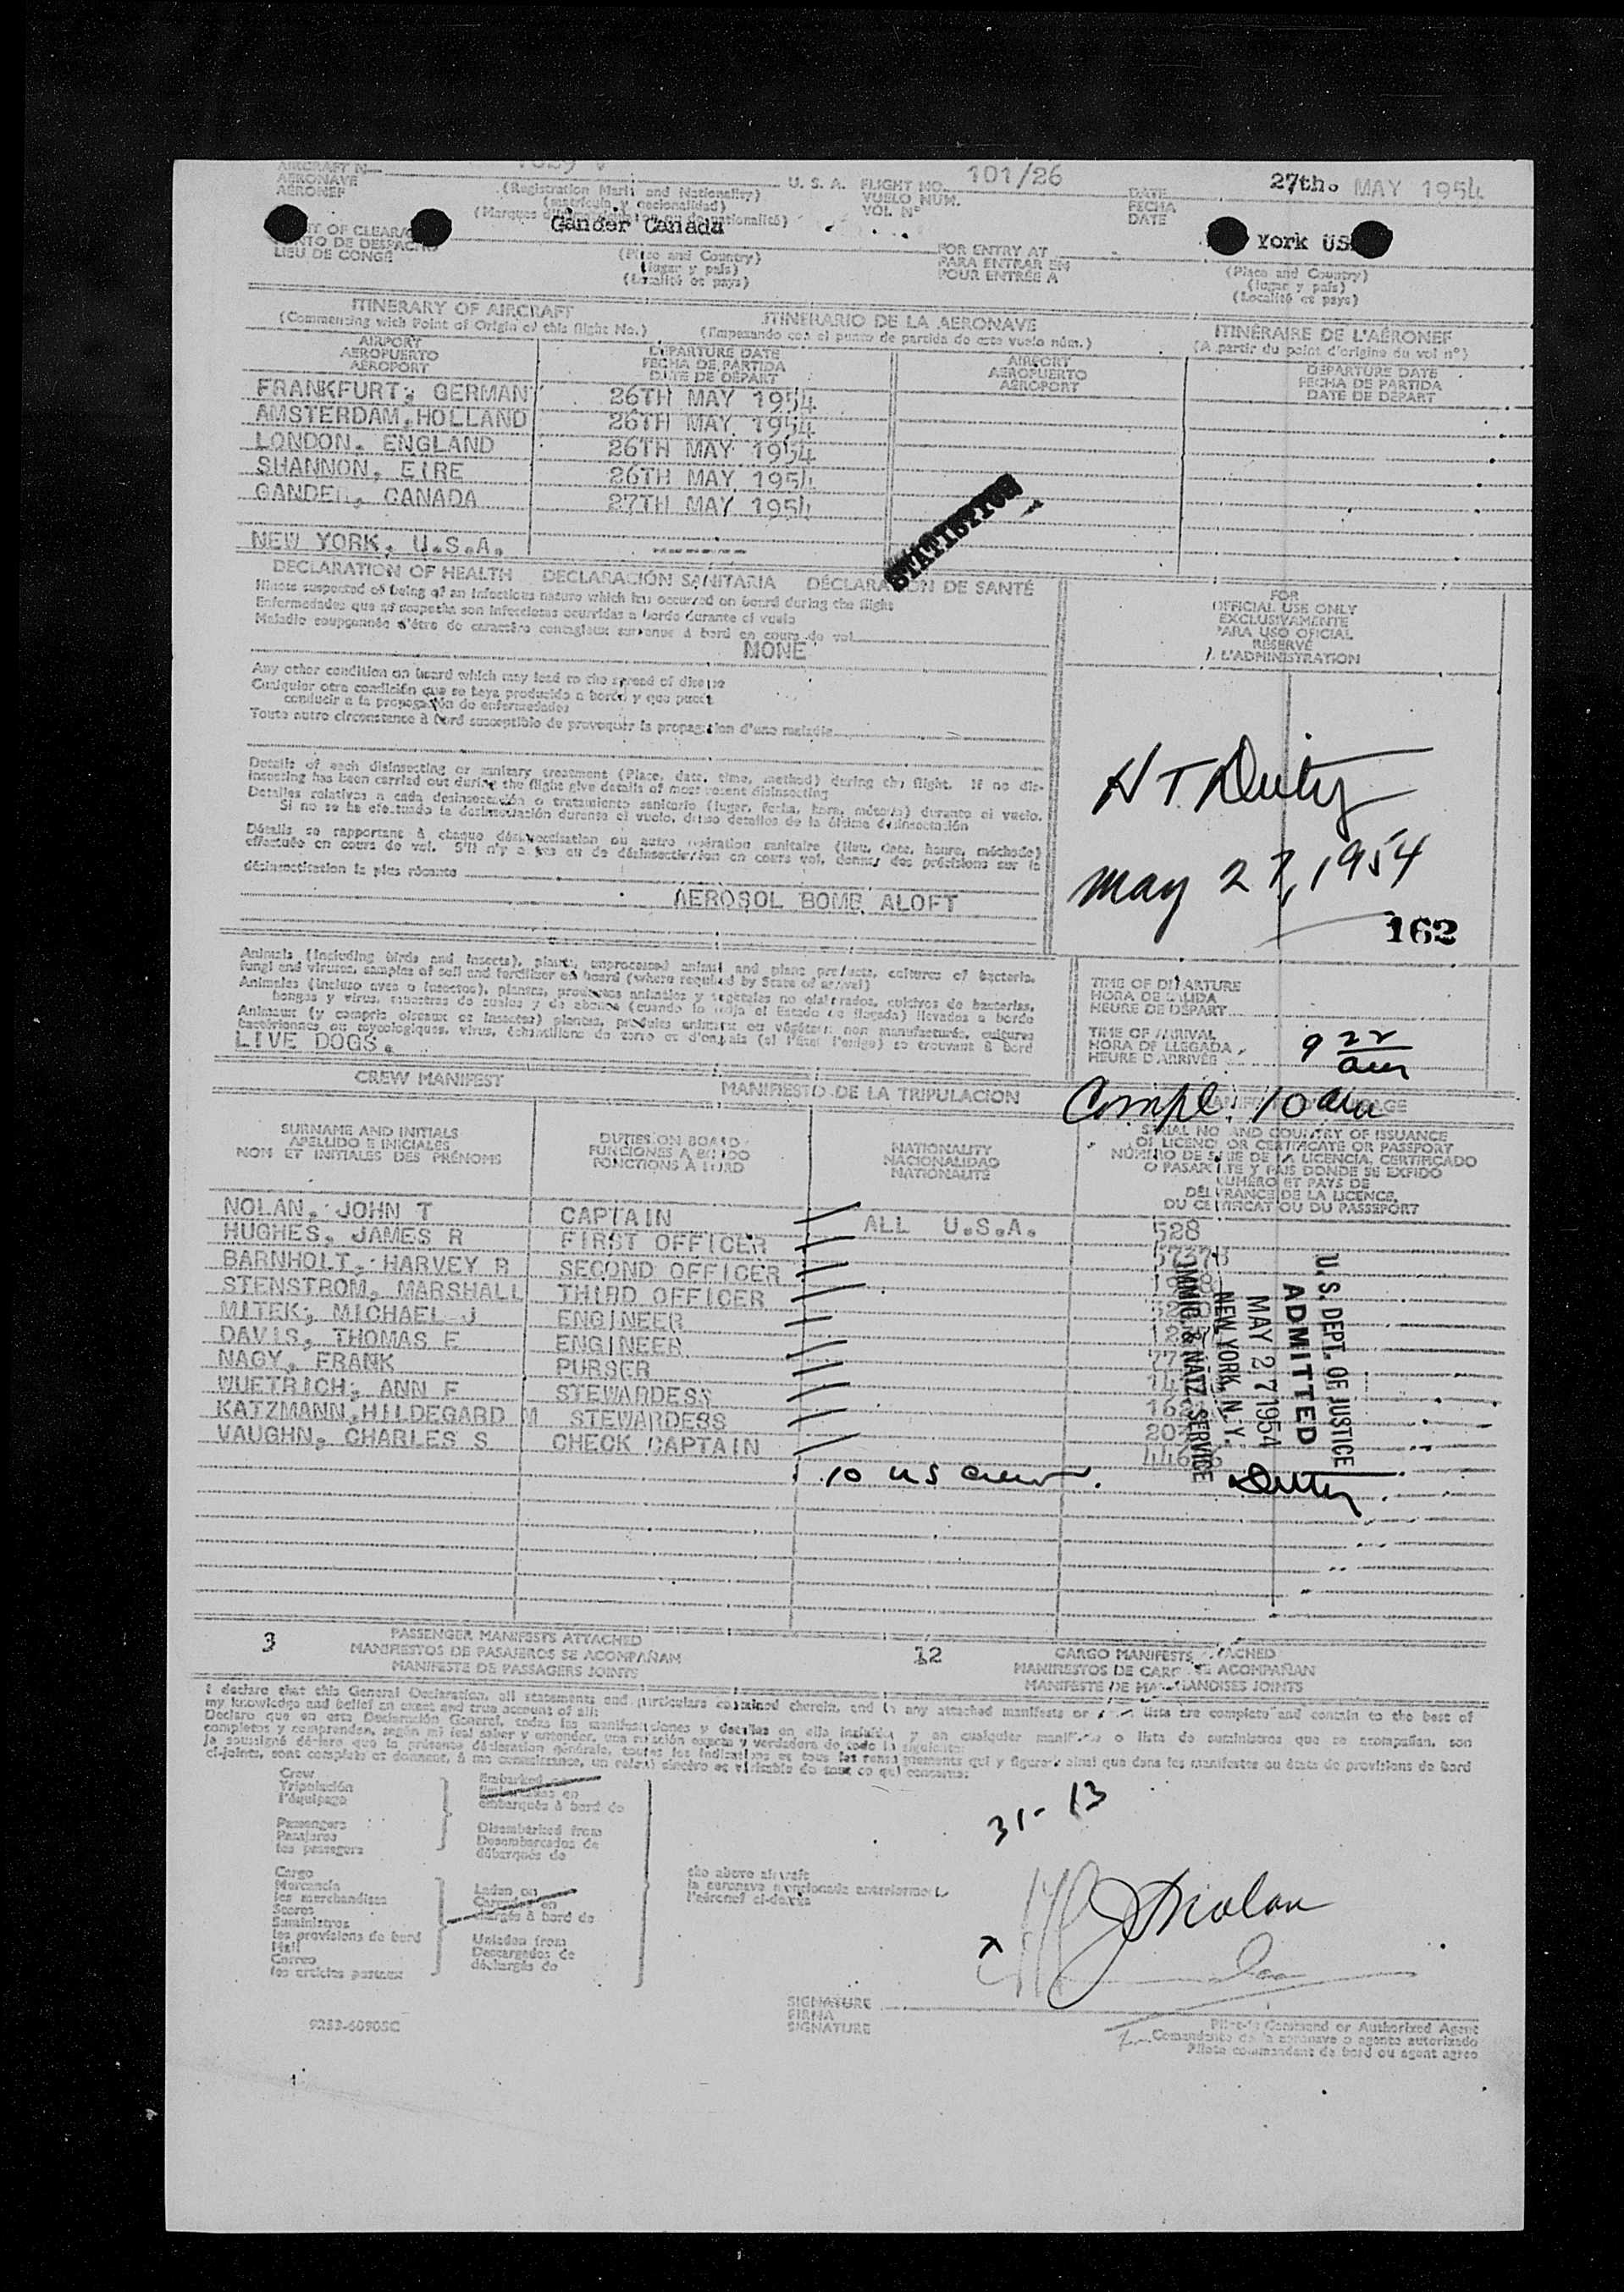 AIRCRAFT N
AERONAVE
AÉRONEF
(Registration Marks and Nationality)
(matrícula y nacionalidad)
U. S. A. FLIGHT NO. 101/26
VUELO NUM.
VOL Nº
DATE 27th. MAY 1954
FECHA
DATE
OF CLEARA
TO DE DESPACHO
LIEU DE CONGÉ
Gander Canada
(Place and Country)
(lugar y país)
(Localité et pays)
FOR ENTRY AT
PARA ENTRAR EN
POUR ENTRÉE A
York US
(Place and Country)
(lugar y país)
(Localité et pays)
ITINERARY OF AIRCRAFT ITINERARIO DE LA AERONAVE ITINÉRAIRE DE L'AÉRONEF
(Commencing with Point of Origin of this flight No.) (Empezando con el punto de partida de este vuelo núm.) (A partir du point d'origine du vol nº)
AIRPORT DEPARTURE DATE AIRPORT DEPARTURE DATE
AEROPUERTO FECHA DE PARTIDA AEROPUERTO FECHA DE PARTIDA
AÉROPORT DATE DE DÉPART AÉROPORT DATE DE DÉPART
FRANKFURT, GERMAN 26TH MAY 1954
AMSTERDAM, HOLLAND 26TH MAY 1954
LONDON, ENGLAND 26TH MAY 1954
SHANNON, EIRE 26TH MAY 1954
GANDER, CANADA 27TH MAY 1954
STATISTICS
NEW YORK, U.S.A. -------
DECLARATION OF HEALTH DECLARACIÓN SANITARIA DÉCLARATION DE SANTÉ
Illness suspected of being of an infectious nature which has occurred on board during the flight
Enfermedades que se sospecha son infecciosas ocurridas a bordo durante el vuelo
Maladie soupçonnée d'être de caractère contagieux survenue à bord en cours de vol
NONE
FOR
OFFICIAL USE ONLY
EXCLUSIVAMENTE
PARA USO OFICIAL
RÉSERVÉ
L'ADMINISTRATION
Any other condition on board which may lead to the spread of disease
Cualquier otra condición que se haya producido a bordo y que pueda
conducir a la propagación de enfermedades
Toute autre circonstance à bord susceptible de provoquer la propagation d'une maladie
Details of each disinsecting or sanitary treatment (Place, date, time, method) during the flight. If no dis-
insecting has been carried out during the flight give details of most recent disinsecting
Detalles relativos a cada desinsectación o tratamiento sanitario (lugar, fecha, hora, método) durante el vuelo.
Si no se ha efectuado la desinsectación durante el vuelo, detalles de la última desinsectación
Détails se rapportant à chaque désinsectisation ou autre opération sanitaire (lieu, date, heure, méthode)
effectuée en cours de vol. S'il n'y a pas eu de désinsectisation en cours vol, donner des précisions sur la
désinsectisation la plus récente
AEROSOL BOMB ALOFT
H T Duty
May 27, 1954
162
Animals (including birds and insects), plants, unprocessed animal and plant products, cultures of bacteria,
fungi and viruses, samples of soil and fertilizer on board (where required by State of arrival)
Animales (incluso aves o insectos), plantas, productos animales y vegetales no elaborados, cultivos de bacterias,
hongos y virus, muestras de suelos y de abonos (cuando lo exija el Estado de llegada) llevados a bordo
Animaux (y compris oiseaux et insectes) plantes, produits animaux ou végétaux non manufacturés, cultures
bactériennes ou mycologiques, virus, échantillons de terre et d'engrais (si l'état l'exige) se trouvant à bord
LIVE DOGS.
TIME OF DEPARTURE
HORA DE SALIDA
HEURE DE DÉPART
TIME OF ARRIVAL
HORA DE LLEGADA
HEURE D'ARRIVÉE
9 22 am
Compl. 10 am
CREW MANIFEST MANIFIESTO DE LA TRIPULACION
SURNAME AND INITIALS
APELLIDO E INICIALES
NOM ET INITIALES DES PRÉNOMS
DUTIES ON BOARD
FUNCIONES A BORDO
FONCTIONS À BORD
NATIONALITY
NACIONALIDAD
NATIONALITÉ
SERIAL NO AND COUNTRY OF ISSUANCE
OF LICENCE OR CERTIFICATE OR PASSPORT
NÚMERO DE SERIE DE LA LICENCIA, CERTIFICADO
O PASAPORTE Y PAIS DONDE SE EXPIDO
NUMÉRO ET PAYS DE
DÉLIVRANCE DE LA LICENCE,
DU CERTIFICAT OU DU PASSEPORT
NOLAN, JOHN T CAPTAIN ALL U.S.A. 528
HUGHES, JAMES R FIRST OFFICER
BARNHOLT, HARVEY R SECOND OFFICER
STENSTROM, MARSHALL THIRD OFFICER
MITEK, MICHAEL J ENGINEER
DAVIS, THOMAS E ENGINEER
NAGY, FRANK PURSER
WUETRICH, ANN F STEWARDESS
KATZMANN, HILDEGARD M STEWARDESS
VAUGHN, CHARLES S CHECK CAPTAIN
U. S. DEPT. OF JUSTICE
ADMITTED
MAY 27 1954
NEW YORK, N. Y.
IMMIG. & NATZ SERVICE
10 US crew. Duty
3 PASSENGER MANIFESTS ATTACHED
MANIFIESTOS DE PASAJEROS SE ACOMPAÑAN
MANIFESTE DE PASSAGERS JOINTS
12 CARGO MANIFESTS ATTACHED
MANIFIESTOS DE CARGA SE ACOMPAÑAN
MANIFESTE DE MARCHANDISES JOINTS
I declare that this General Declaration, all statements and particulars contained therein, and in any attached manifests or lists are complete and contain to the best of
my knowledge and belief an exact and true account of all:
Declaro que en esta Declaración General, todas las manifestaciones y detalles en ella incluidos y en cualquier manifiesto o lista de suministros que se acompañan, son
completos y comprenden, según mi leal saber y entender, una relación exacta y verdadera de todo lo siguiente:
Je soussigné déclare que la présente déclaration générale, toutes les indications et tous les renseignements qui y figurent ainsi que dans les manifestes ou états de provisions de bord
ci-joints, sont complets et donnent, à ma connaissance, un relevé sincère et véritable de tout ce qui concerne:
Crew
Tripulación
l'équipage
Passengers
Pasajeros
les passagers
Cargo
Mercancía
les marchandises
Stores
Suministros
les provisions de bord
Mail
Correo
les articles postaux
Embarked
Embarcados en
embarqués à bord de
Disembarked from
Desembarcados de
débarqués de
Laden on
Cargados en
chargés à bord de
Unladen from
Descargados de
déchargés de
the above aircraft
la aeronave mencionada anteriormente
l'aéronef ci-dessus
31-13
x J Nolan
SIGNATURE
FIRMA
SIGNATURE
Pilot-in Command or Authorized Agent
Comandante de la aeronave o agente autorizado
Pilote commandant de bord ou agent agréé
9253-60905C